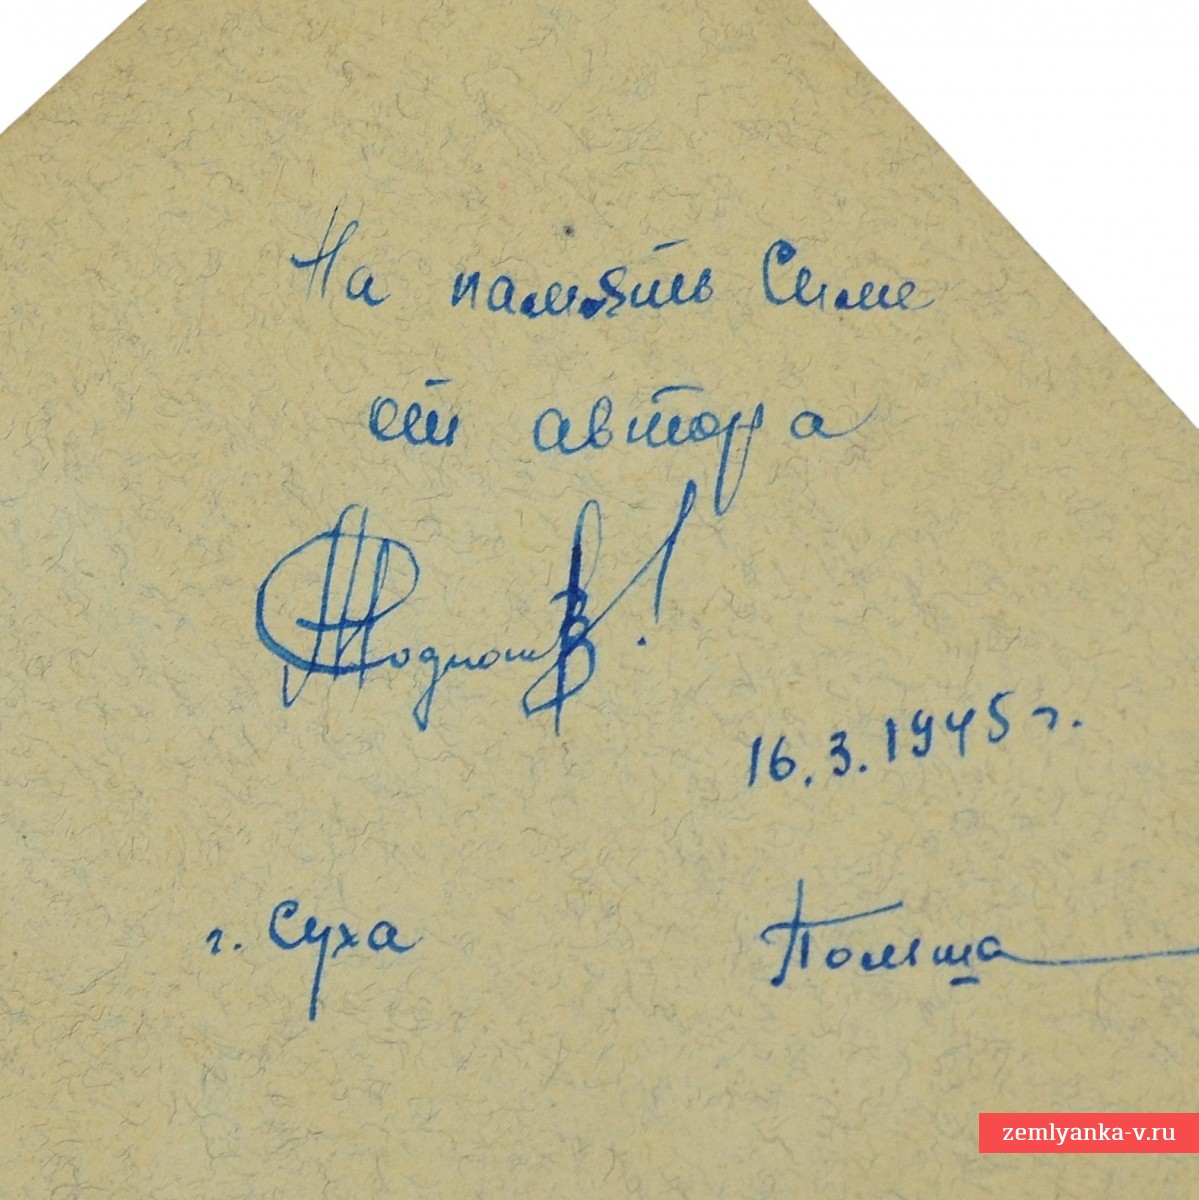 На память Симе
от автора
16.3.1945 г.
г. Суха Польша
zemlyanka-v.ru